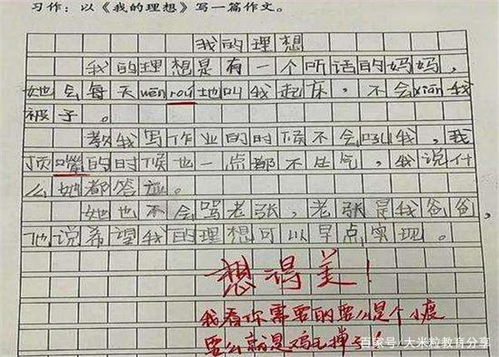 习作：以《我的理想》写一篇作文。
我的理想
我的理想是有一个听话的妈妈，
她会每天wēn rōu地叫我起床，不会xiān我
被子。
教我写作业的时候不会吼我，我
顶嘴的时候也一点都不生气，我说什
么她都答应。
她也不会骂老张，老张是我爸爸，
他说希望我的理想可以早点实现。
想得美！
我看你需要的要么是个小
要么就是鸡毛掸子！
百家号/大米粒教育分享